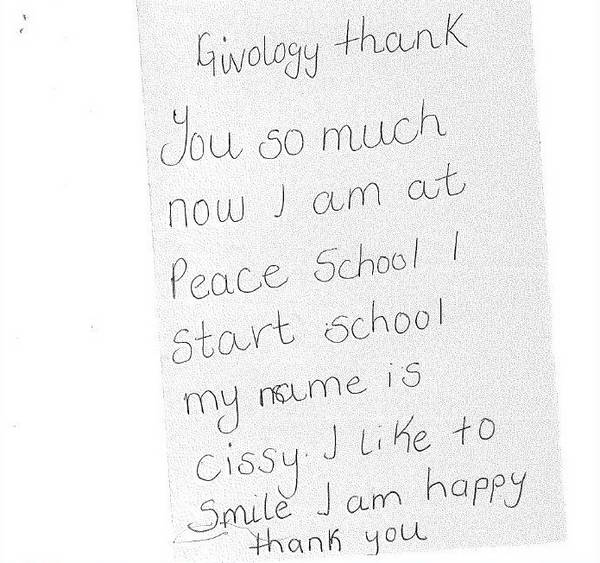 Givology thank
You so much
now I am at
Peace School I
Start school
my name is
cissy. I like to
Smile I am happy
thank you